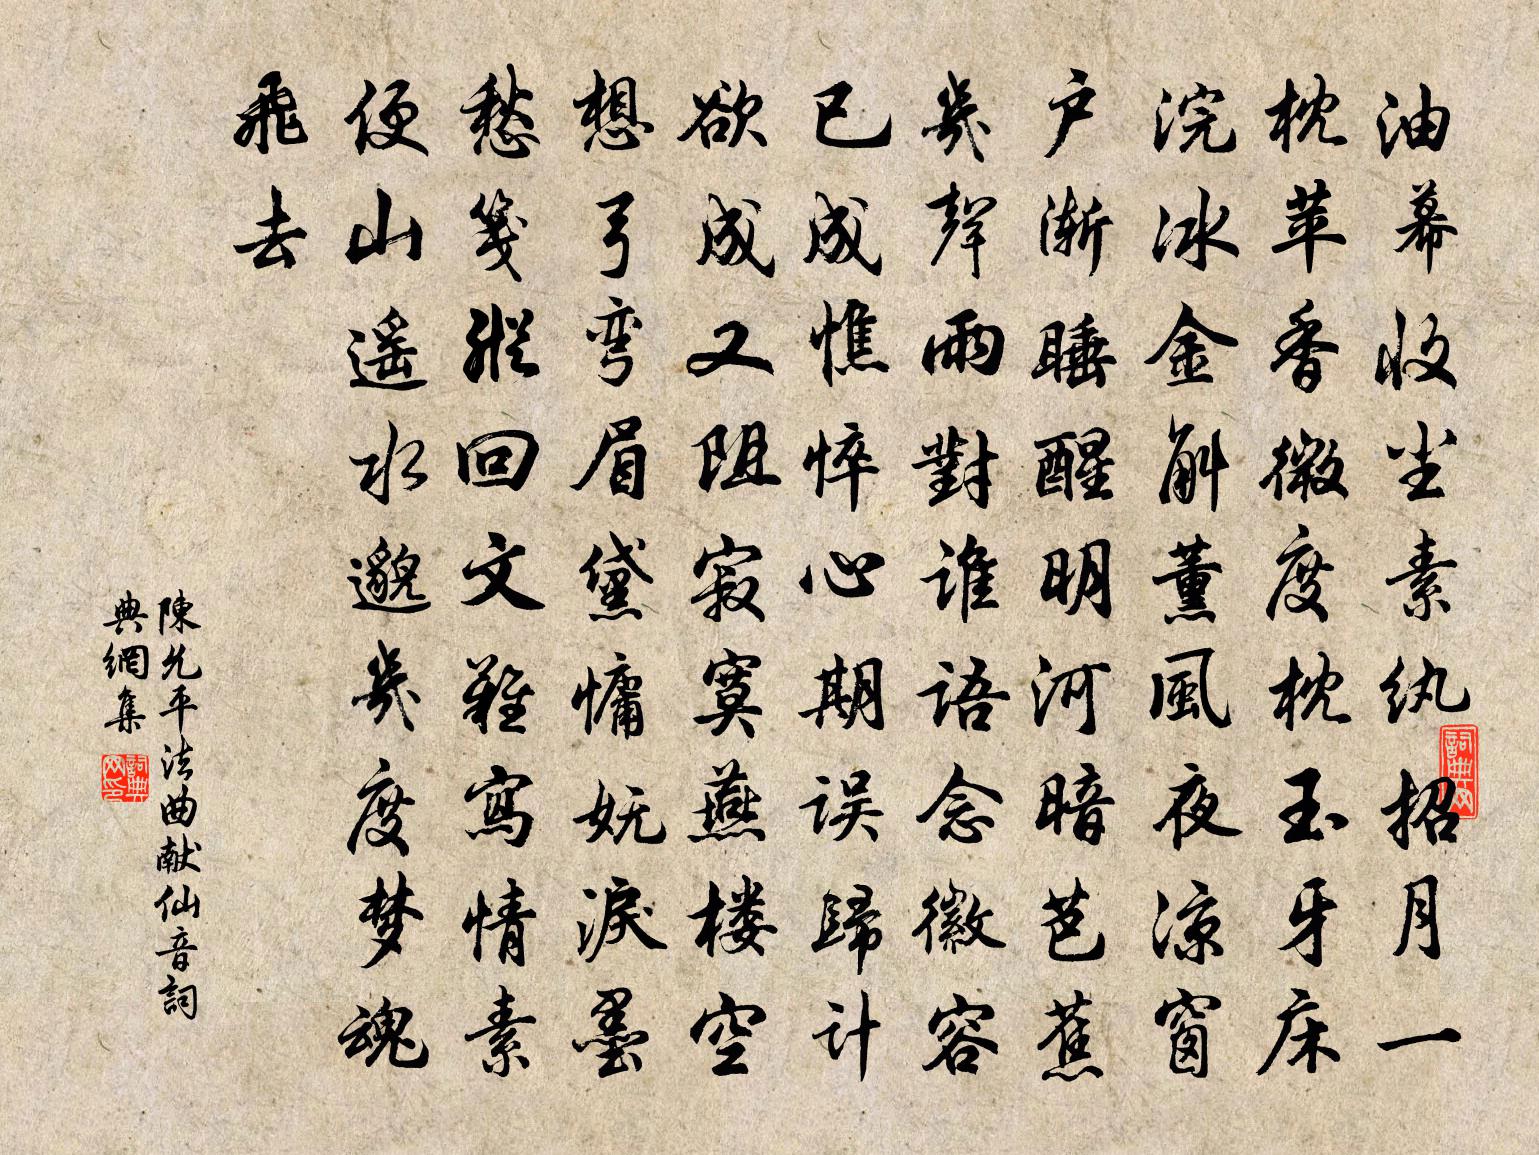 油幕收尘素纨招月一
枕苹香微度枕玉牙床
浣冰金斛薰風夜凉窗
户渐睡醒明河暗芭蕉
幾聲雨對誰語念徽容
已成憔悴心期误歸计
欲成又阻寂寞燕楼空
想弓弯眉黛慵妩淚墨
愁笺縱回文難寫情素
便山遥水邈幾度梦魂
飛去
陳允平法曲献仙音詞
典網集
詞典网
詞典网印